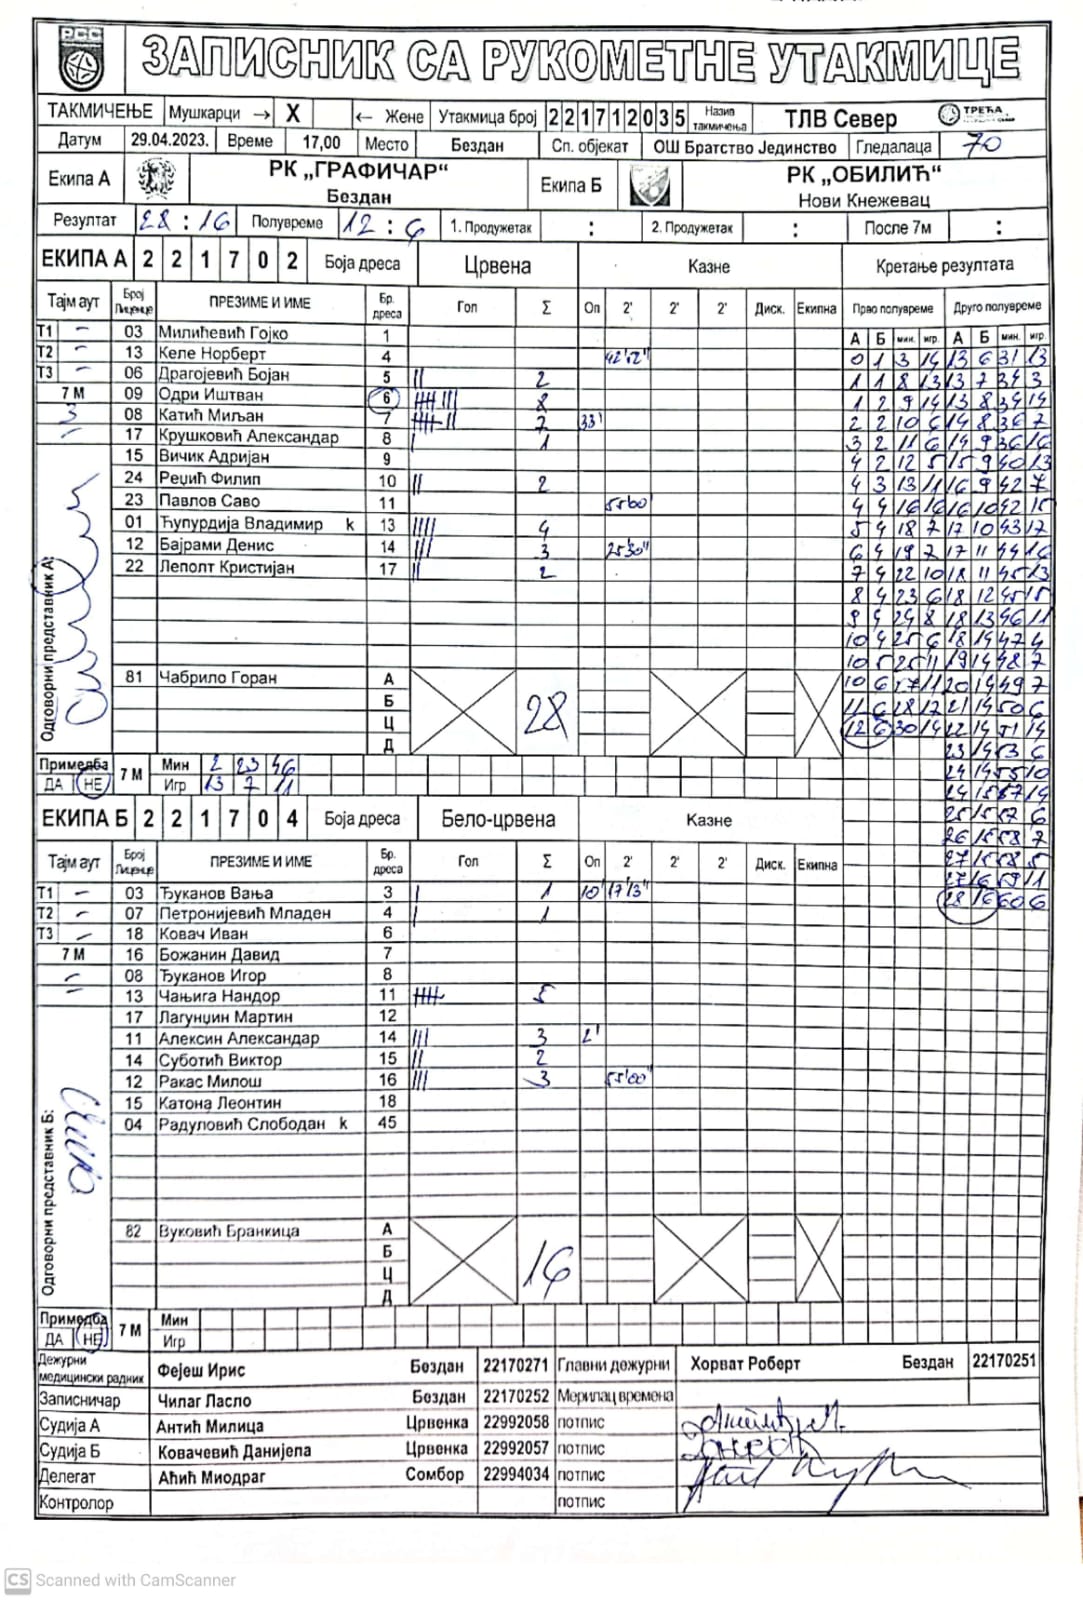 РСС
ЗАПИСНИК СА РУКОМЕТНЕ УТАКМИЦЕ
ТАКМИЧЕЊЕ Мушкарци → X ← Жене Утакмица број 2 2 1 7 1 2 0 3 5 Назив такмичења ТЛВ Север ТРЕЋА
Датум 29.04.2023. Време 17,00 Место Бездан Сп. објекат ОШ Братство Јединство Гледалаца 70
Екипа А РК „ГРАФИЧАР“ Бездан Екипа Б РК „ОБИЛИЋ“ Нови Кнежевац
Резултат 28 : 16 Полувреме 12 : 6 1. Продужетак : 2. Продужетак : После 7м :
ЕКИПА А 2 2 1 7 0 2 Боја дреса Црвена Казне Кретање резултата
Тајм аут Број Лиценце ПРЕЗИМЕ И ИМЕ Бр. дреса Гол Σ Оп 2' 2' 2' Диск. Екипна Прво полувреме Друго полувреме
А Б мин. игр. А Б мин. игр.
Т1 – 03 Милићевић Гојко 1
Т2 – 13 Келе Норберт 4 42'52" 0 1 3 14 13 6 31 13
Т3 – 06 Драгојевић Бојан 5 || 2 1 1 8 13 13 7 34 3
7 М 09 Одри Иштван 6 |||| ||| 8 1 2 9 14 13 8 34 14
3 08 Катић Миљан 7 |||| || 7 33' 2 2 10 6 14 8 36 7
17 Крушковић Александар 8 | 1 3 2 11 6 14 9 36 16
15 Вичик Адријан 9 4 2 12 5 15 9 40 13
24 Рецић Филип 10 || 2 4 3 13 11 16 9 42 7
23 Павлов Саво 11 55'00" 4 4 16 16 16 10 42 15
01 Ћупурдија Владимир к 13 |||| 4 5 4 18 7 17 10 43 17
12 Бајрами Денис 14 ||| 3 25'30" 6 4 19 7 17 11 44 16
22 Леполт Кристијан 17 || 2 7 4 22 10 18 11 45 13
8 4 23 6 18 12 45 15
9 4 24 8 18 13 46 11
10 4 25 6 18 14 47 4
10 5 25 11 19 14 48 7
81 Чабрило Горан А 28 10 6 27 11 20 14 49 7
Б 11 6 28 17 21 14 50 6
Ц 12 6 30 14 22 14 51 14
Д 23 14 53 6
Одговорни представник А:
Примедба 7 М Мин 2 23 46 24 14 55 10
ДА НЕ Игр 13 7 11 24 15 57 14
ЕКИПА Б 2 2 1 7 0 4 Боја дреса Бело-црвена Казне 25 15 57 6
26 15 58 7
Тајм аут Број Лиценце ПРЕЗИМЕ И ИМЕ Бр. дреса Гол Σ Оп 2' 2' 2' Диск. Екипна 27 15 58 5
Т1 – 03 Ђуканов Вања 3 | 1 10' 17'13" 27 16 59 11
Т2 – 07 Петронијевић Младен 4 | 1 28 16 60 6
Т3 – 18 Ковач Иван 6
7 М 16 Божанин Давид 7
08 Ђуканов Игор 8
13 Чањига Нандор 11 |||| 5
17 Лагунџин Мартин 12
11 Алексин Александар 14 ||| 3 2'
14 Суботић Виктор 15 || 2
12 Ракас Милош 16 ||| 3 55'00"
15 Катона Леонтин 18
04 Радуловић Слободан к 45
Одговорни представник Б:
82 Вуковић Бранкица А 16
Б
Ц
Д
Примедба 7 М Мин
ДА НЕ Игр
Дежурни медицински радник Фејеш Ирис Бездан 22170271 Главни дежурни Хорват Роберт Бездан 22170251
Записничар Чилаг Ласло Бездан 22170252 Мерилац времена
Судија А Антић Милица Црвенка 22992058 потпис
Судија Б Ковачевић Данијела Црвенка 22992057 потпис
Делегат Аћић Миодраг Сомбор 22994034 потпис
Контролор потпис
CS Scanned with CamScanner